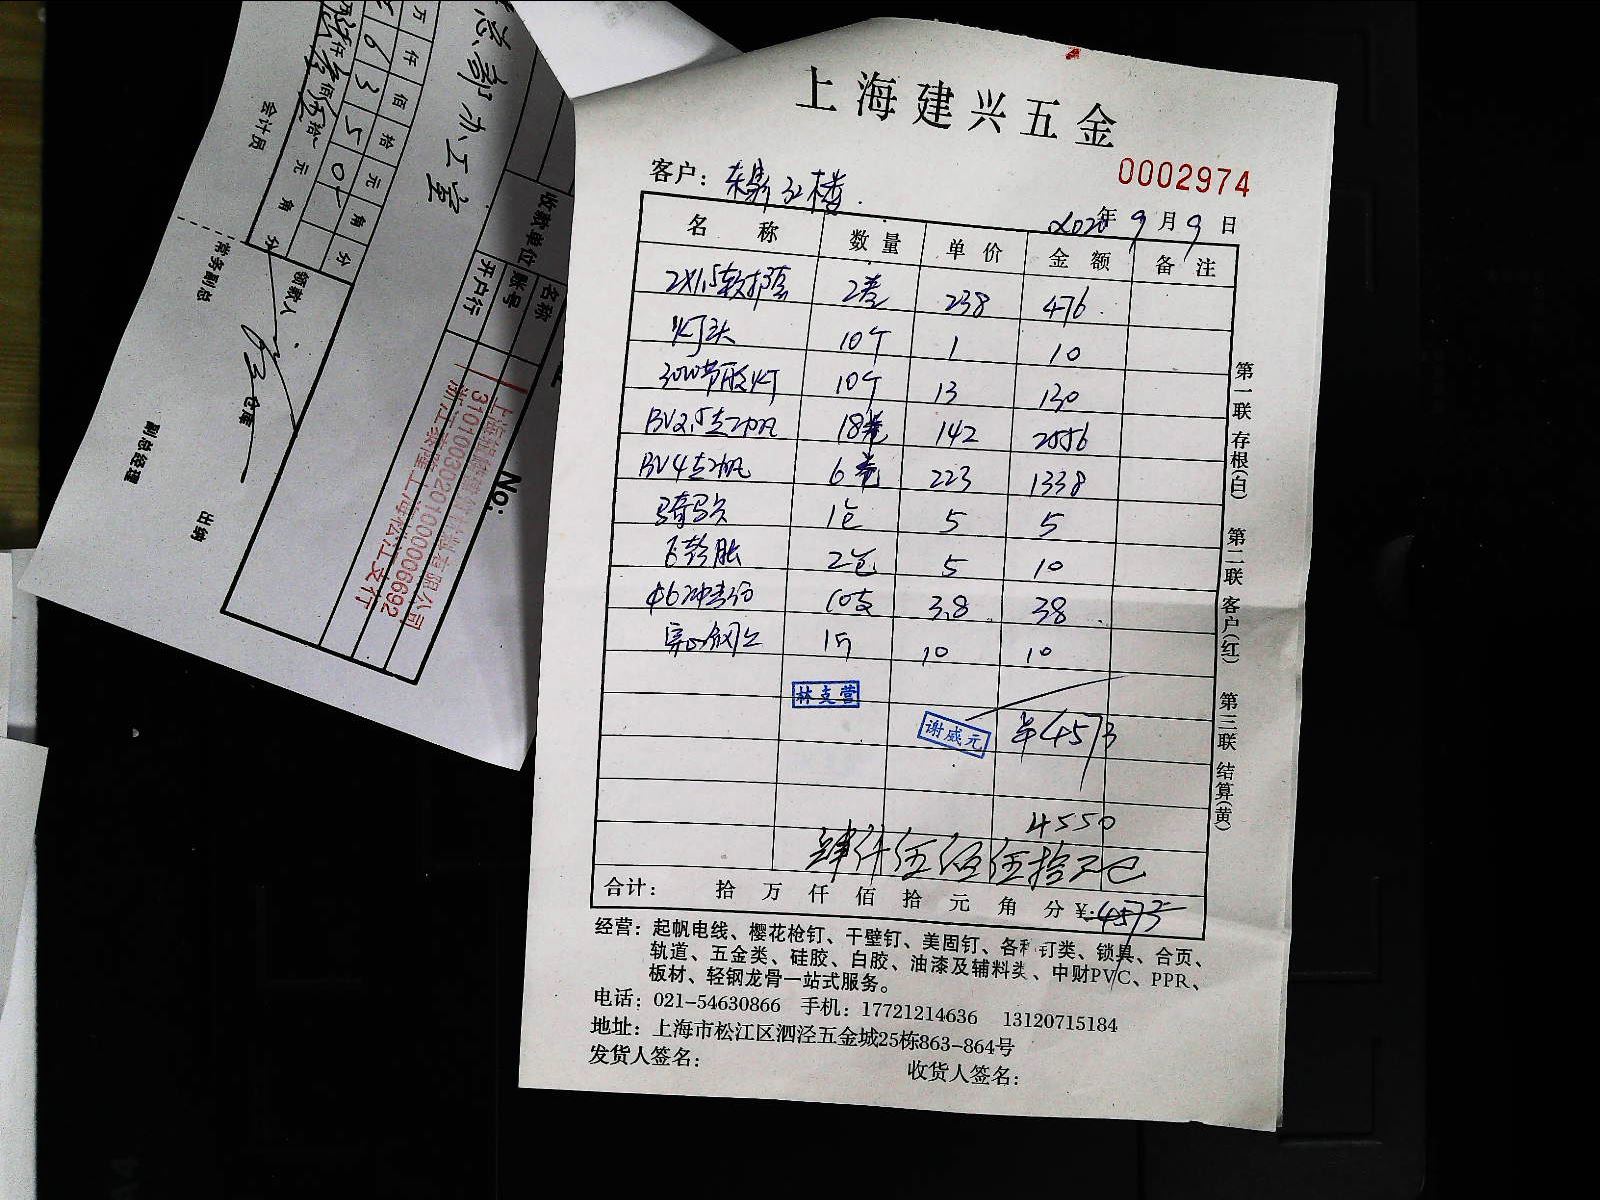 上海建兴五金
0002974
客户：
2020年9月9日
名称 数量 单价 金额 备注
2X1.5软护套 2卷 238 476
灯头 10个 1 10
30W节能灯 10个 13 130
BV2.5起帆 18卷 142 2556
BV4起帆 6卷 223 1338
骑马卡 1包 5 5
2包 5 10
φ6冲击钻 10支 3.8 38
穿线钢丝 1 10 10
林支营
谢威元 ¥4573
4550
肆仟伍佰伍拾元
合计： 拾 万 仟 佰 拾 元 角 分 ¥:4573
经营：起帆电线、樱花枪钉、干壁钉、美固钉、各种钉类、锁具、合页、
轨道、五金类、硅胶、白胶、油漆及辅料类、中财PVC、PPR、
板材、轻钢龙骨一站式服务。
电话：021-54630866 手机：17721214636 13120715184
地址：上海市松江区泗泾五金城25栋863-864号
发货人签名： 收货人签名：
第一联 存根(白) 第二联 客户(红) 第三联 结算(黄)
办公室
万 仟 佰 拾 元 角 分
6 3 5 0
会计员
收款单位
名称
账号
开户行
310100302010000006692
No:
领款人
常务副总
仓库
副总经理
出纳